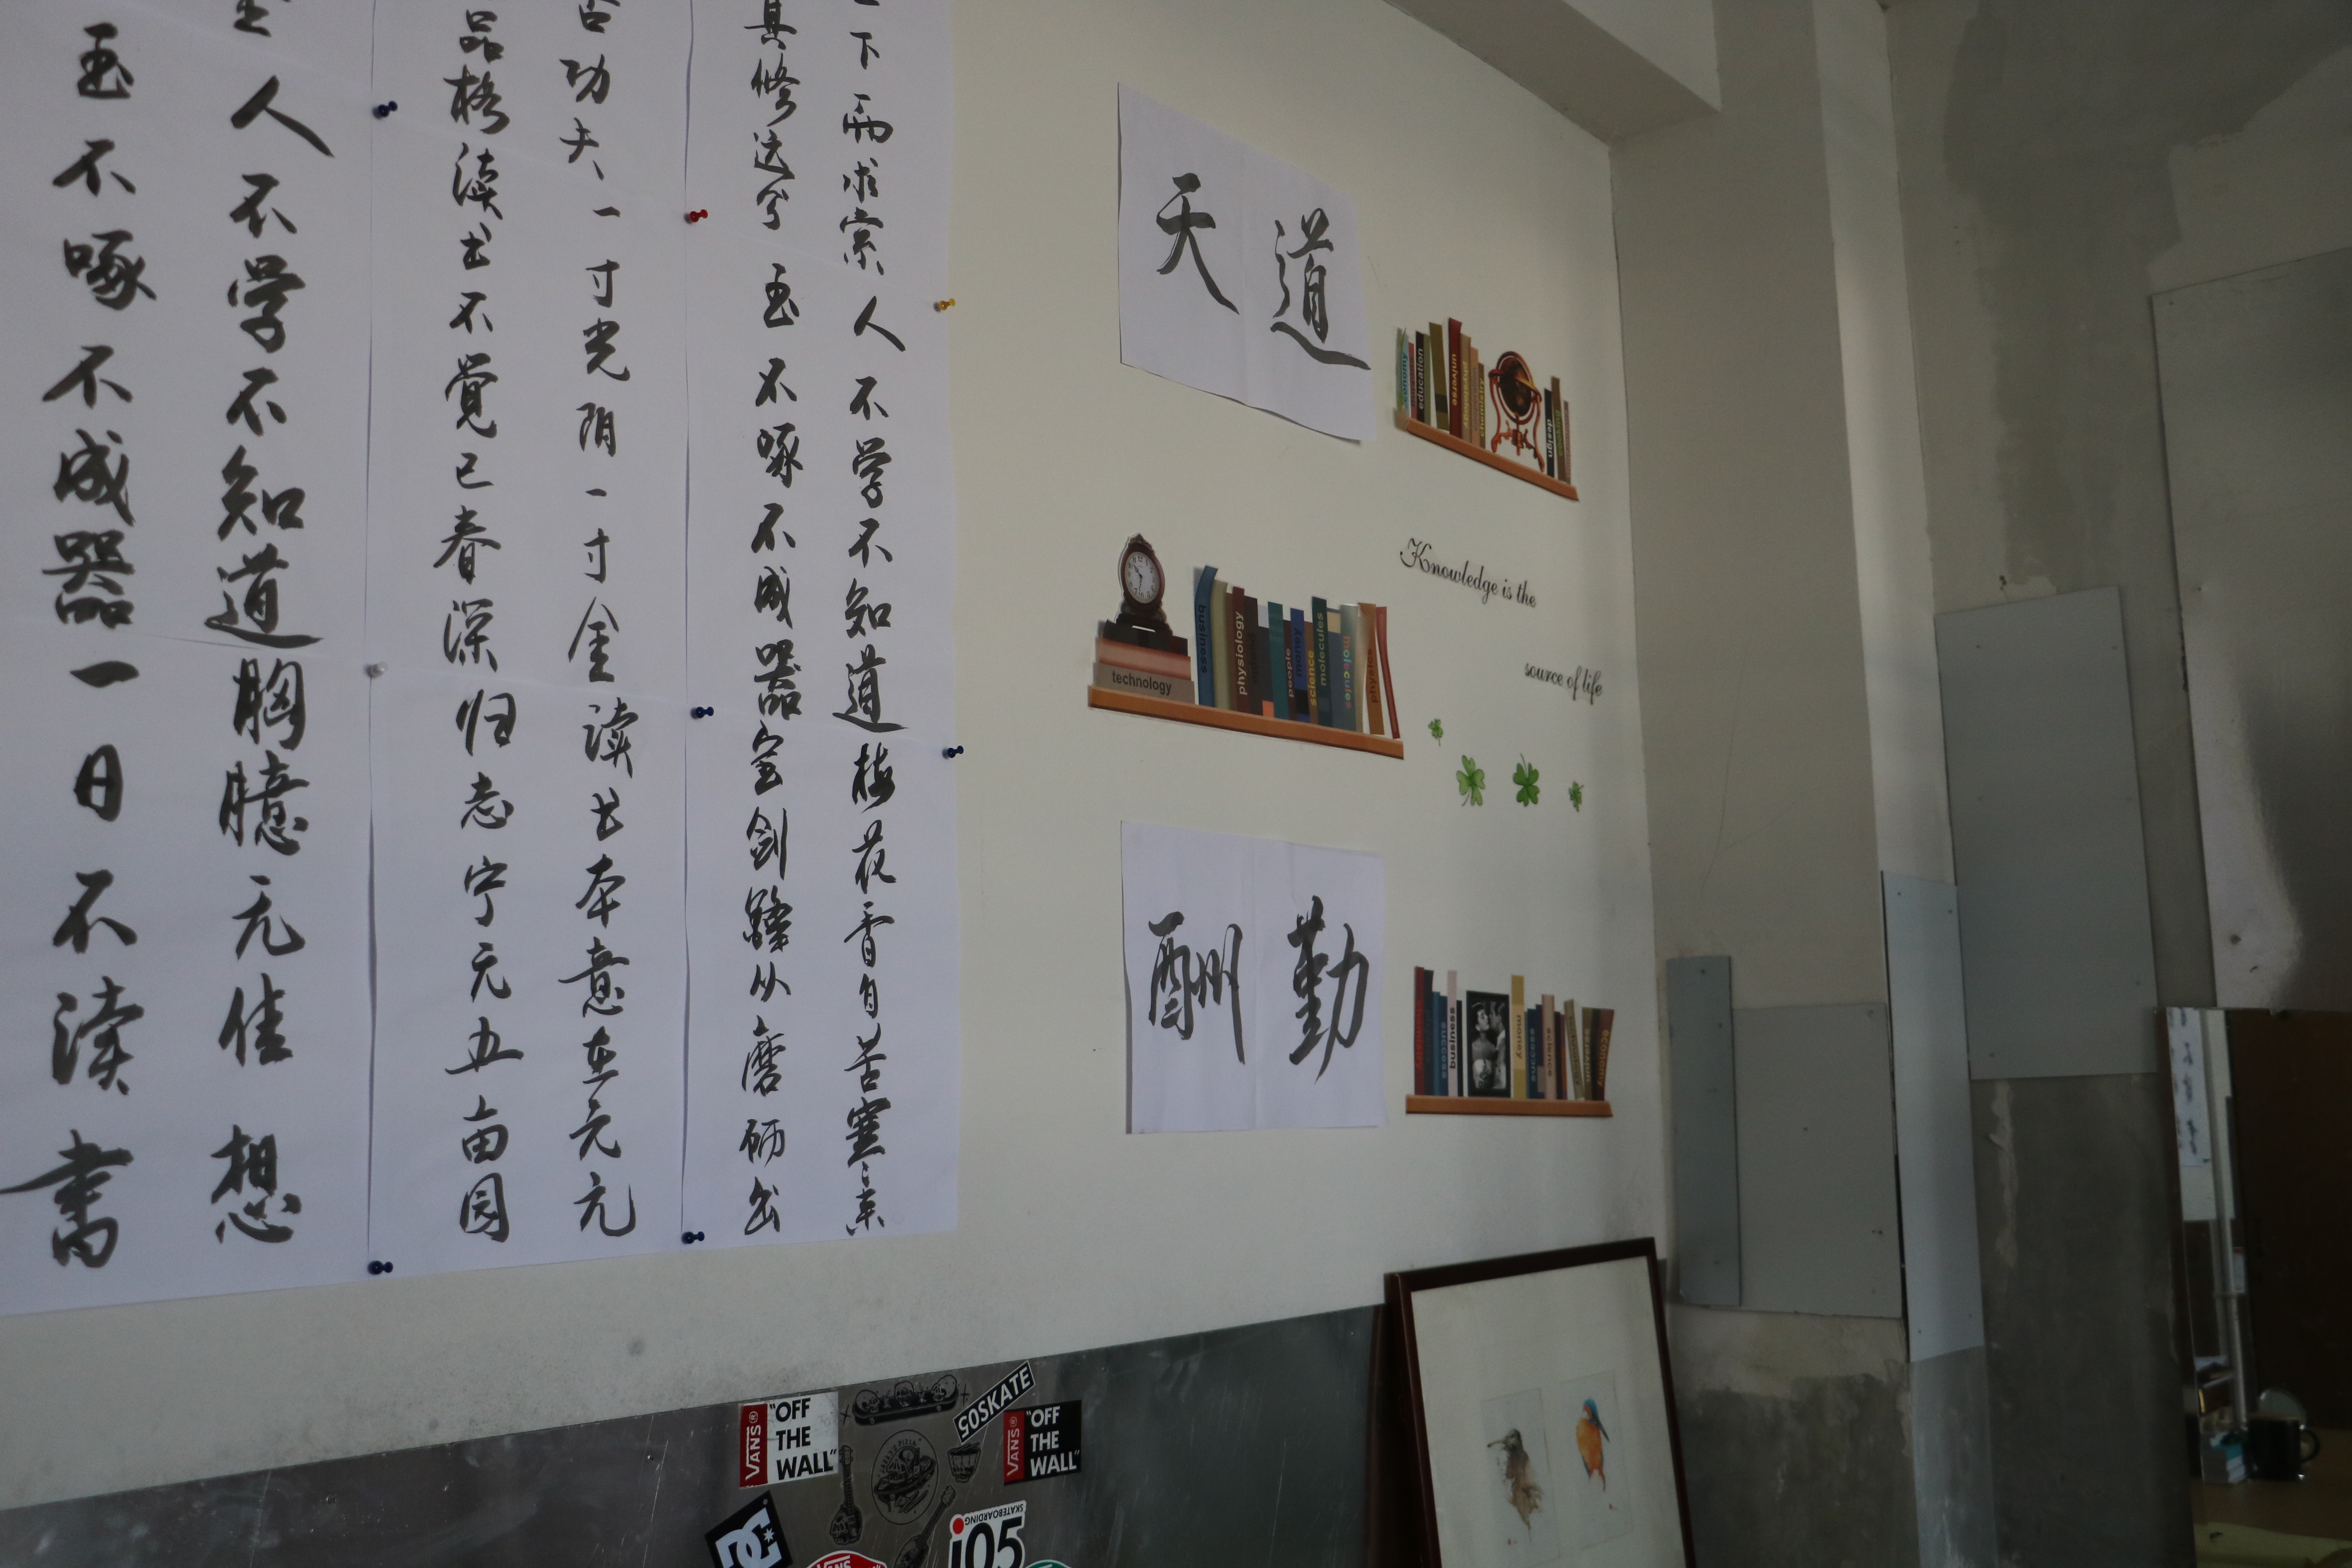 玉不啄不成器一日不读書
人不学不知道胸臆无佳想
品格读书不觉已春深归志宁无五亩园
功夫一寸光阴一寸金读书本意在元元
其修远兮玉不啄不成器宝剑鋒从磨砺出
下而求索人不学不知道梅花香自苦寒来
天道
education
universe
design
Knowledge is the
source of life
technology
business
physiology
people
money
science
molecules
molecule
physics
酬勤
success
business
money
success
science
economy
VANS
"OFF
THE
WALL"
SOSKATE
VANS
"OFF
THE
WALL"
DC
SKATEBOARDING
jo5
VANS